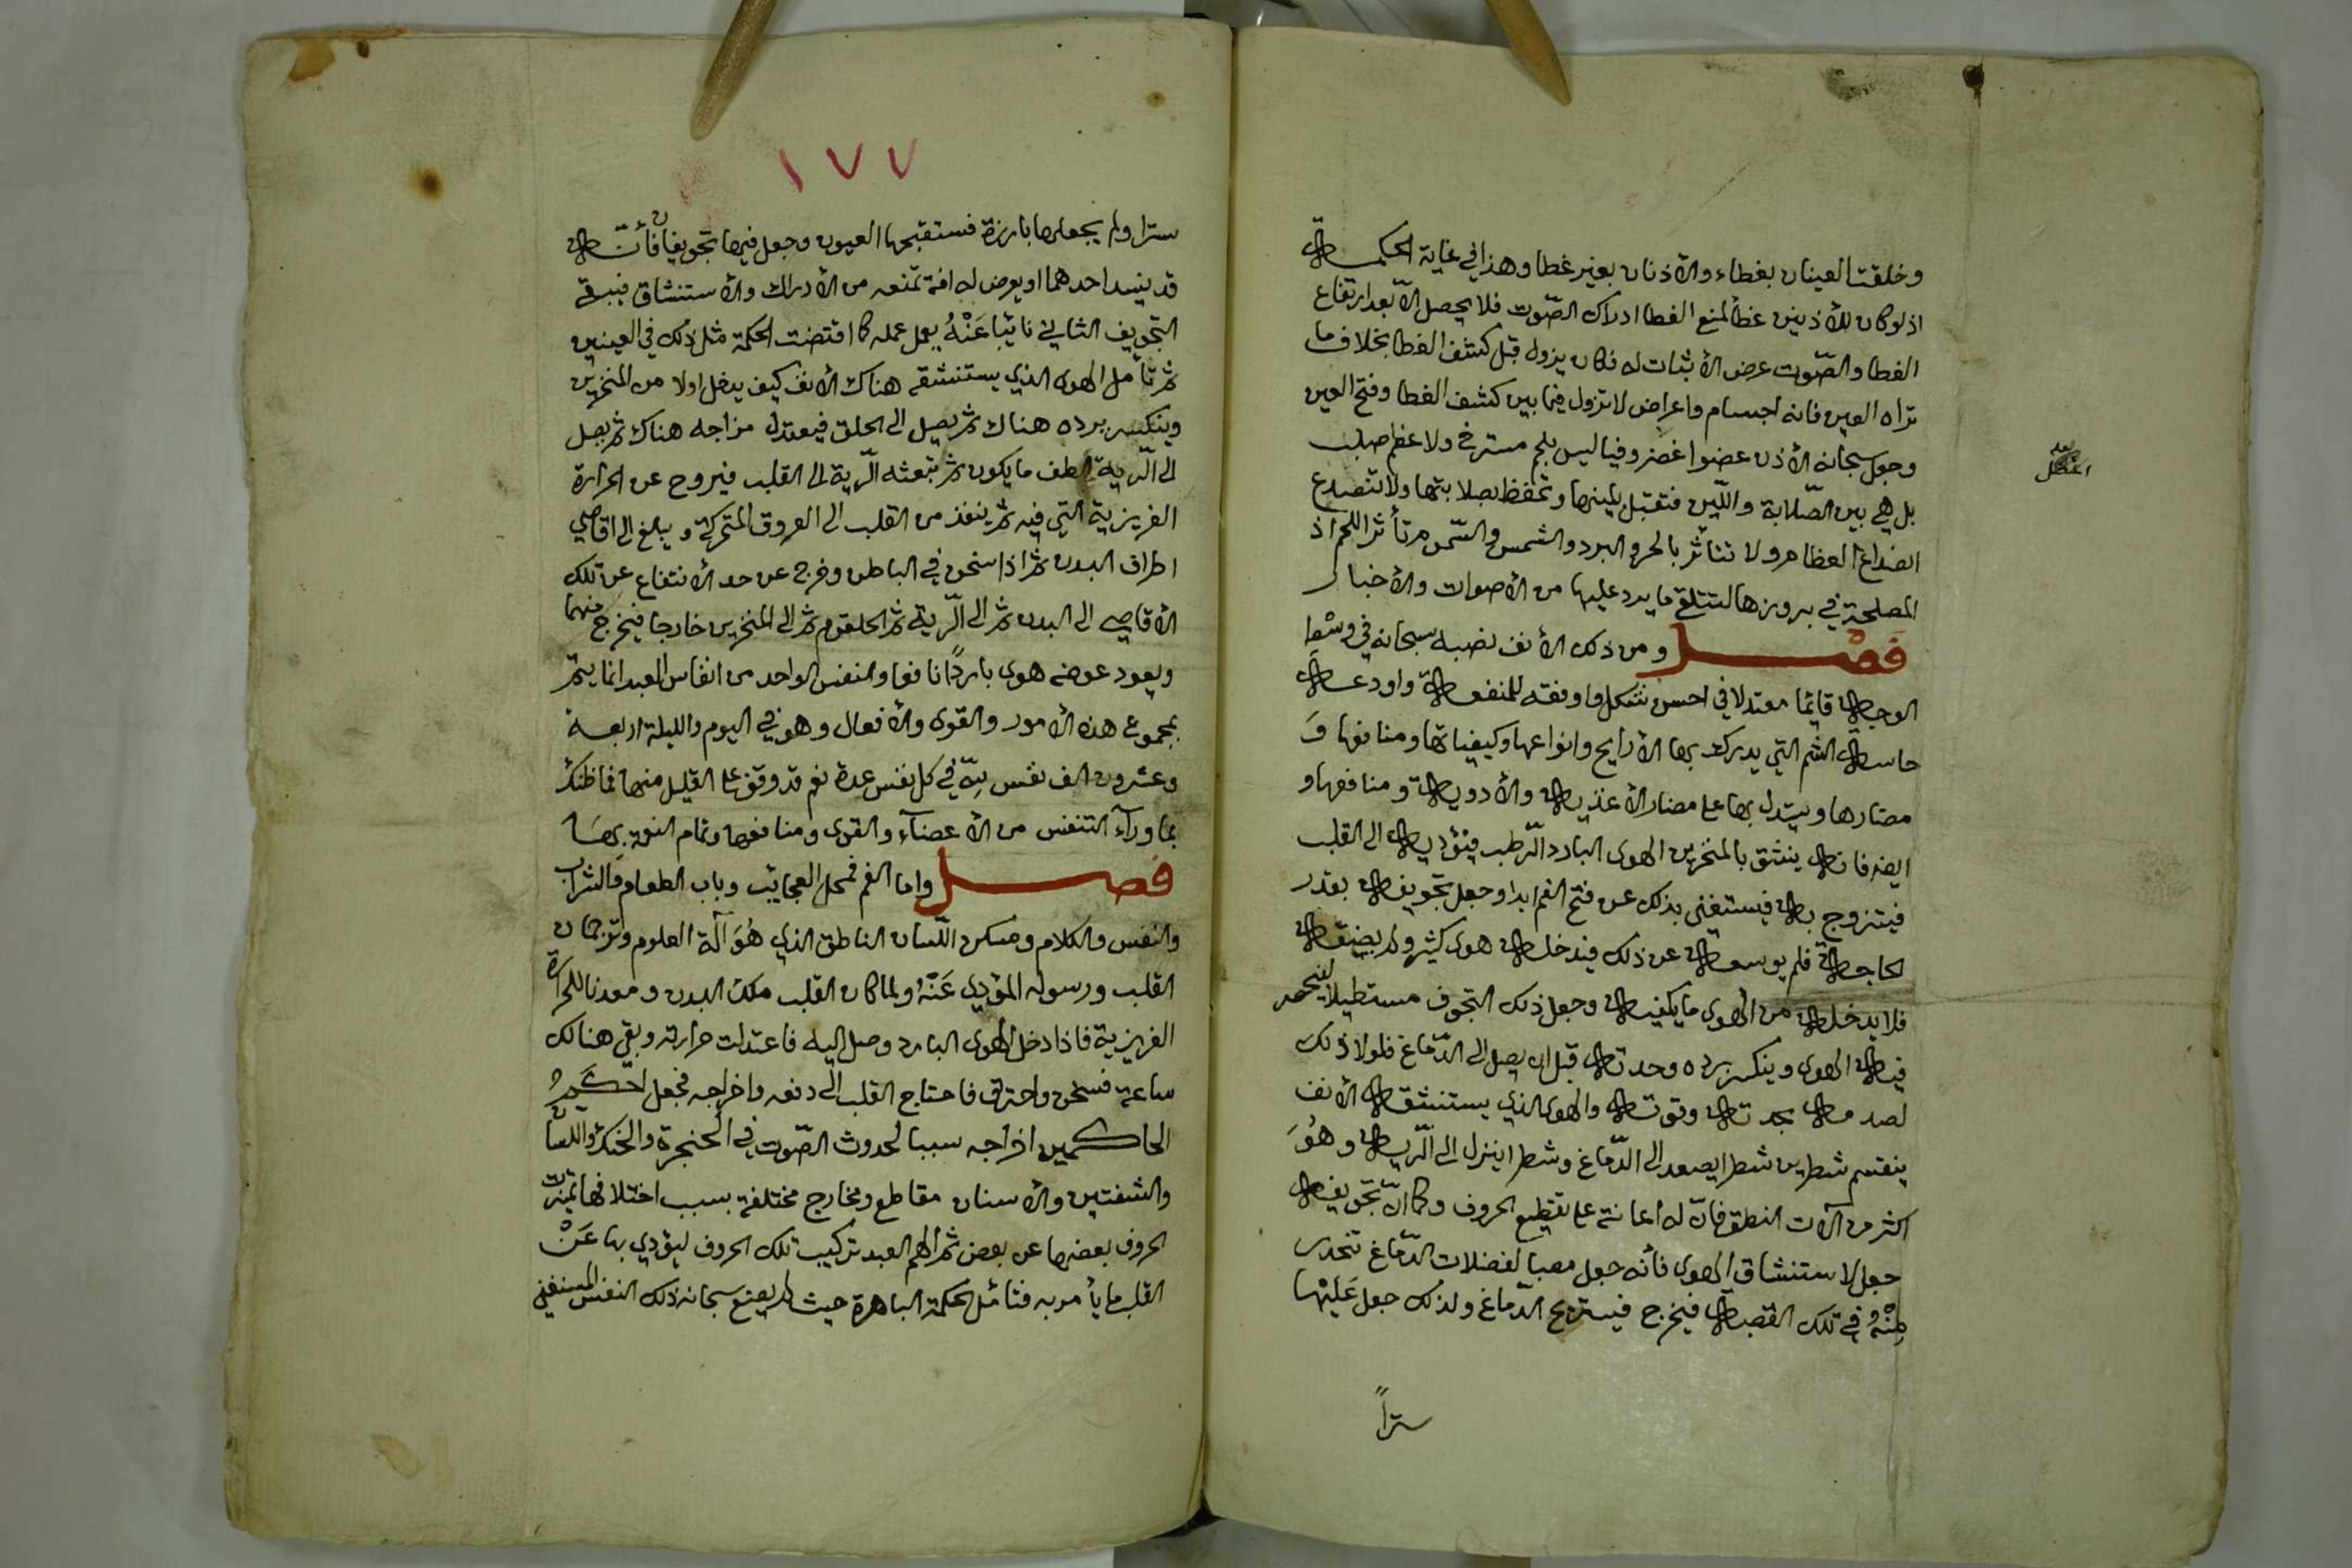 وخلقت العينان بغطاء والأذنان بغير غطا وهذا في غاية الحكمة
اذ لو كان للأذنين غطأ لمنع الغطا ادراك الصّوت فلا يحصل الاّ بعد ارتفاع
الغطا والصّوت عرض لا ثبات له فكان يزول قبل كشف الغطا بخلاف ما
تراه العين فانه اجسام واعراض لا تزول فيما بين كشف الغطا وفتح العين
وجعل سبحانه الأذن عضوا غضروفيا ليس بلحم مسترخ ولا عظم صلب
بل هي بين الصّلابة واللّين فتقبل بلينها وتحفظ بصلابتها ولا تنصدع
انصداع العظام ولا تتأثر بالحر والبرد والشمس والسّموم تأثر اللحم اذ
المصلحة في بروزها لتتلقى ما يرد عليها من الأصوات والأخبار
فَصْل ومن ذلك الأنف نصبه سبحانه في وسْط
الوجه قايما معتدلا في احسن شكل واوفقه للمنفعة واودعه
حاسة الشم التي يدرك بها الأرايح وانواعها وكيفياتها ومنافعها وَ
مضارها ويستدل بها على مضار الأغذية والأدوية ومنافعها و
ايضه فانه ينشق بالمنخرين الهوى البارد الرّطب فيؤديه الى القلب
فيتروح به فيستغنى بذلك عن فتح الفم ابدا وجعل تجويفه بقدر
الحاجة فلم يوسعه عن ذلك فيدخله هوى كثير ولم يضيقه
فلا يدخله من الهوى ما يكفيه وجعل ذلك التجوف مستطيلا لينحصر
فيه الهوى وينكسر برده وحدته قبل ان يصل الى الدّماغ فلولا ذلك
لصدمه بحدته وقوته والهوى الذي يستنشقه الأنف
ينقسم شطرين شطرا يصعد الى الدّماغ وشطرا ينزل الى الرّية وهُوَ
اكثر من آلات النطق فانّ له اعانة على تقطيع الحروف وكما انّ تجويفه
جعل لاستنشاق الهوى فأنه جعل مصبا لفضلات الدّماغ تنحدر
مِنْهُ في تلك القصبة فيخرج فيستريح الدّماغ ولذلك جعل عَلَيْها
ستراً
١٧٧
سترا ولم يجعلها بارزة فستقبحها العيون وجعل فيها تجويفان فأنّه
قد ينسد احدهما او يعرض له افة تمنعه من الأدراك والأستنشاق فيبقى
التجويف الثاني نايبا عَنْهُ يعمل عمله كما اقتضت الحكمة مثل ذلك في العينين
ثم تأمل الهوى الذي يستنشقه هناك الأنف كيف يدخل اولا من المنخرين
وينكسر برده هناك ثم يصل الى الحلق فيعتدل مزاجه هناك ثم يصل
الى الرّية الطف ما يكون ثم تبعثه الرّية الى القلب فيروح عن الحرارة
الغريزية التي فيه ثم ينفذ من القلب الى العروق المتحركة ويبلغ الى اقاصي
اطراف البدن ثم اذا سخن في الباطن وخرج عن حد الأنتفاع عن تلك
الأقاصي الى البدن ثم الى الرّية ثم الحلقوم ثم الى المنخرين خارجا فيخرج منهما
ويعود عوضه هوى باردًا نافعا والنفس الواحد من انفاس العبد انما يتم
بمجموع هذه الأمور والقوى والأفعال وهو في اليوم والليلة اربعة
وعشرون الف نفس للّه في كل نفس عدة نعم قد وقف على القليل منها فما ظنك
بما ورآء التنفس من الأعضآء والقوى ومنافعها وتمام النعمة بها
فصل واما الفم فمحل العجايب وباب الطعام والشراب
والنفس والكلام ومسكن اللّسان الناطق الذي هُوَ آلة العلوم وترجمان
القلب ورسوله المؤدي عَنْهُ ولما كان القلب ملك البدن ومعدنا للحرارة
الغريزية فاذا دخل الهوى البارد وصل اليه فاعتدلت حرارته وبقي هنالك
ساعة فسخن واحترق فاحتاج القلب الى دفعه واخراجه فجعل احكم
الحاكمين اخراجه سببا لحدوث الصّوت في الحنجرة والحنك واللسان
والشفتين والأسنان مقاطع ومخارج مختلفة بسبب اختلافها تميزت
الحروف بعضها عن بعض ثم الهم العبد تركيب تلك الحروف ليؤدي بها عَنْ
القلب ما يأمر به فتأمل الحكمة الباهرة حيث لم يضع سبحانه ذلك النفس المستغنى